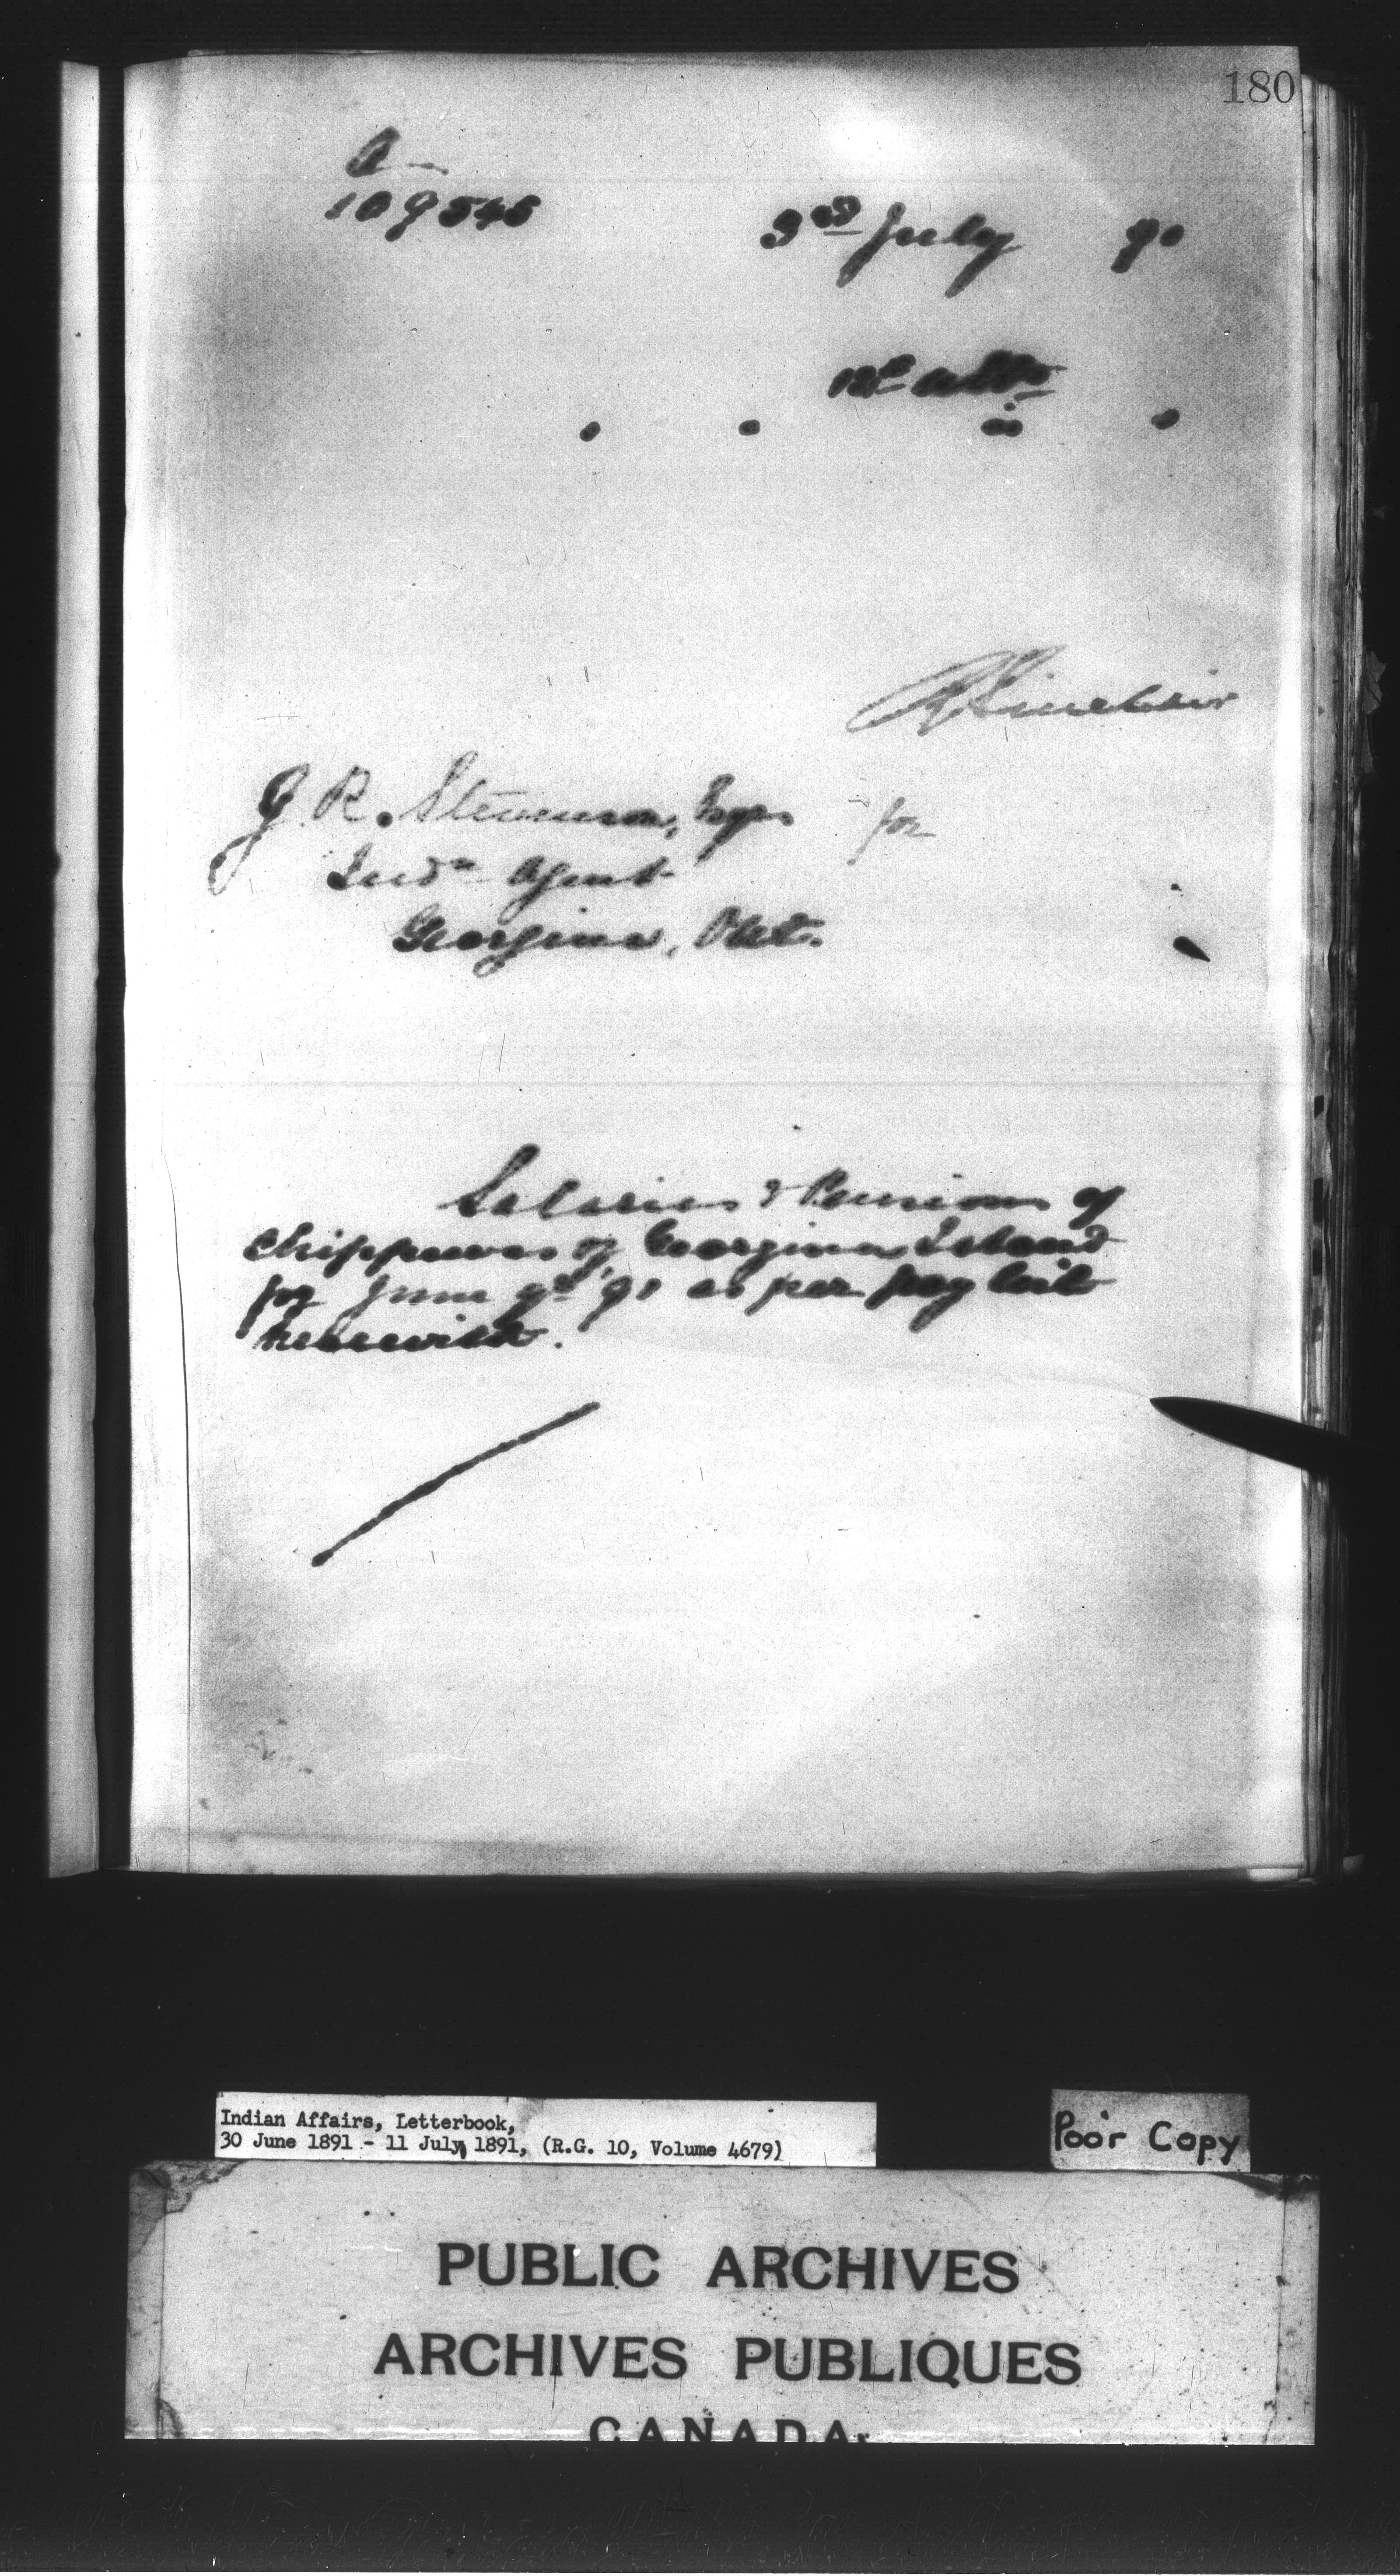 180
A
109546
3rd July 91
12th ulto
R Sinclair
J. R. Stevenson, Esqr
for
Indn Agent
Georgina, Ont.
Salaries & Pensions of
Chippewas of Georgina Island
for June qr 91 as per pay list
herewith.
Indian Affairs, Letterbook,
30 June 1891 - 11 July 1891, (R.G. 10, Volume 4679)
Poor Copy
PUBLIC ARCHIVES
ARCHIVES PUBLIQUES
CANADA